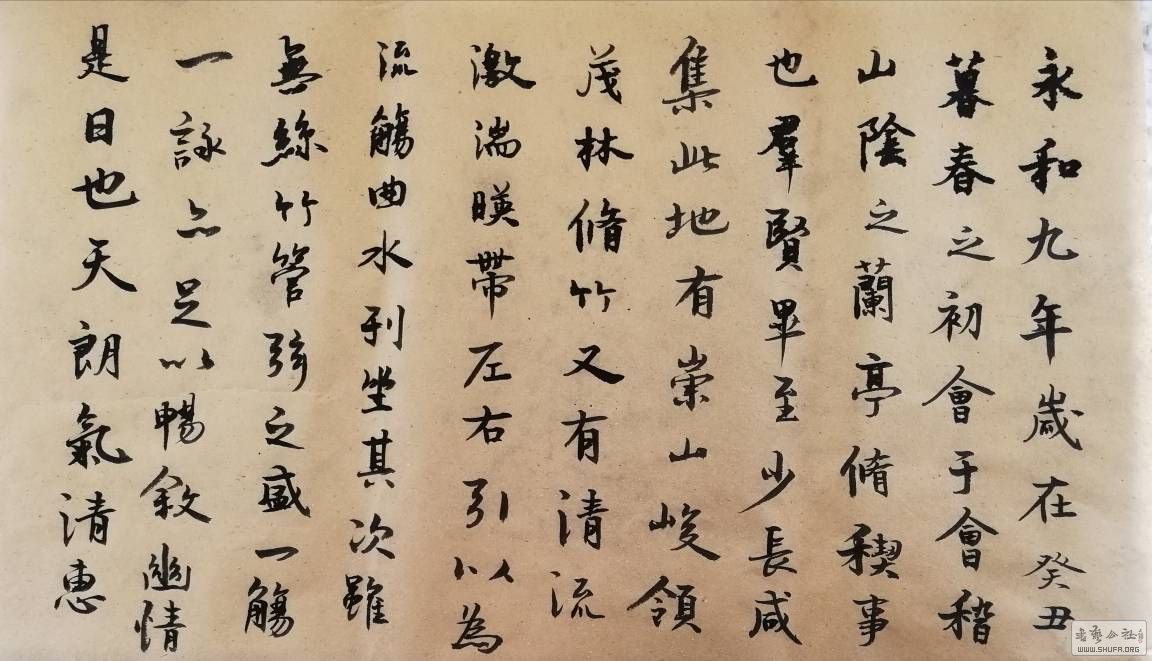 永和九年歲在癸丑
暮春之初會于會稽
山陰之蘭亭脩稧事
也羣賢畢至少長咸
集此地有崇山峻領
茂林脩竹又有清流
激湍暎帶左右引以為
流觴曲水列坐其次雖
無絲竹管弦之盛一觴
一詠亦足以暢敘幽情
是日也天朗氣清惠
書藝公社
WWW.SHUFA.ORG